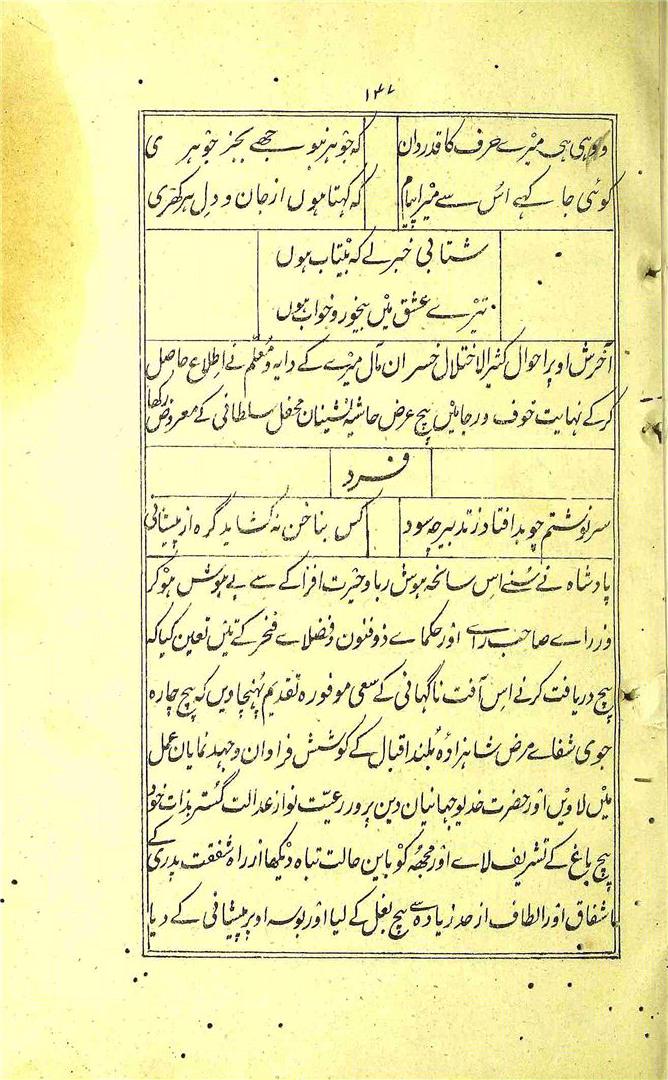 ۱۴۷
وہی ہی میرے حرف کا قدردان کہ جوہر نبوجھے بجز جوہری
کوئی جا کہے اُس سے میرا پیام کہ کہتا ہوں از جان و دل ہر گھری
شتابی خبر لے کہ بیتاب ہوں
تیرے عشق میں بیخور و خواب ہوں
آخرش اوپر احوال کثیر الاختلال خسران مآل میرے کے دایہ و معلّم نے اِطلاع حاصل
کر کے نہایت خوف و رجا میں بیچ عرض حاشیہ نشینان محفل سلطانی کے معروض رکھا
فرد
سرنوشتم چو بد افتاد ز تدبیر چہ سود کس بناخن نہ کشاید گرہ از پیشانی
پادشاہ نے سُنے اِس سانحہ ہوش ربا و حیرت افزا کے سے بے ہوش ہو کر
وزراے صاحب راے اور حکماے ذوفنون و فضلاے فنحر کے تئیں تعین کیا کہ
بیچ دریافت کرنے اس آفت ناگہانی کے سعی موفورہ تقدیم پُہنچاویں کہ بیچ چارہ
جوی شفاے مرض شاہزادۂ بلند اقبال کے کوشش فراوان و جہد نمایان عمل
میں لاویں اور حضرت خدیو جہانیان دین پرور رعیّت نواز عدالت گستر بذات خود
بیچ باغ کے تشریف لاے اور مجھہ کو باین حالت تباہ دیکھا از راہ شفقت پدری کے
اشفاق اور الطاف از حد زیادہ سے بیچ بغل کے لیا اور بوسہ اوپر پیشانی کے دیا